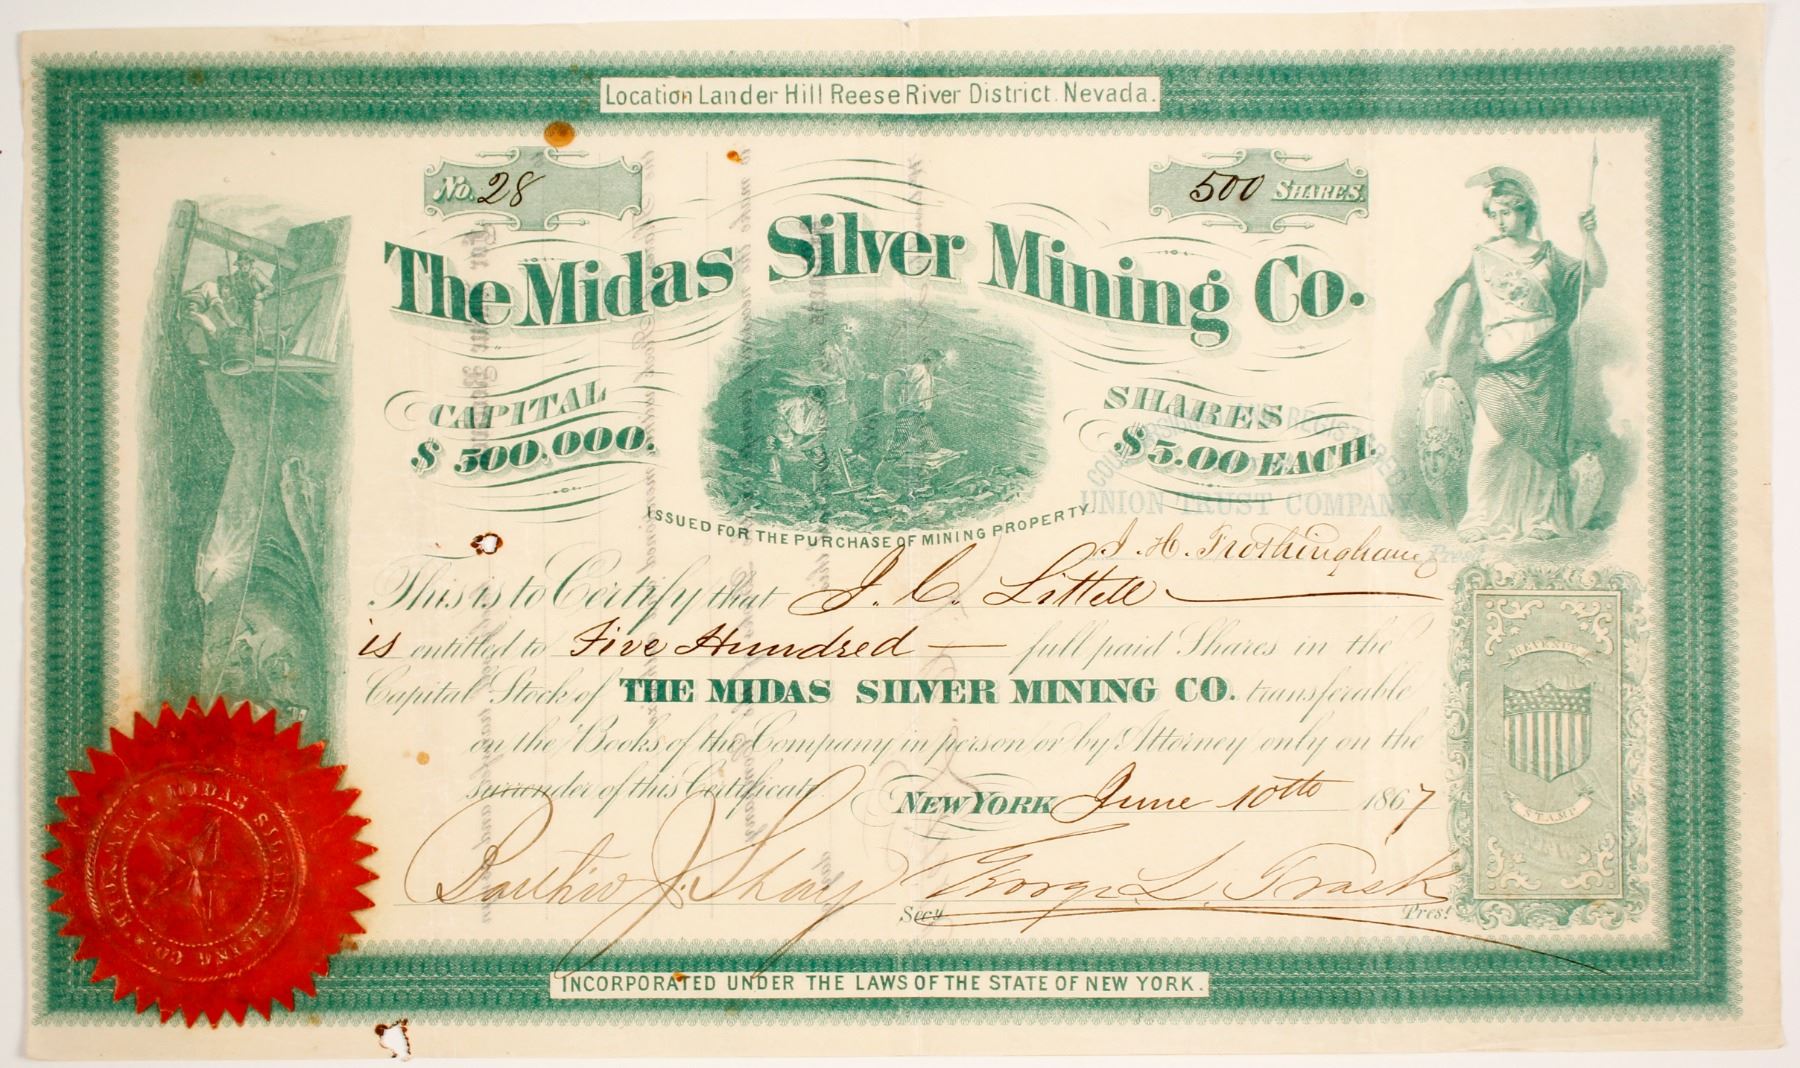 Location Lander Hill Reese River District. Nevada.
No. 28
500 SHARES.
The Midas Silver Mining Co.
CAPITAL
$ 500,000.
SHARES
$5.00 EACH.
ISSUED FOR THE PURCHASE OF MINING PROPERTY
COUNTERSIGNED AND REGISTERED
UNION TRUST COMPANY
J. H. Frothingham Prest
This is to Certify that J. C. Littell
is entitled to Five Hundred — full paid Shares in the
Capital Stock of THE MIDAS SILVER MINING CO. transferable
on the Books of the Company in person or by Attorney only on the
surrender of this Certificate.
NEW YORK June 10th 1867
J. Shay
Secy
George L. Trask
Prest
REVENUE
STAMP
MIDAS SILVER MINING CO.
INCORPORATED UNDER THE LAWS OF THE STATE OF NEW YORK.